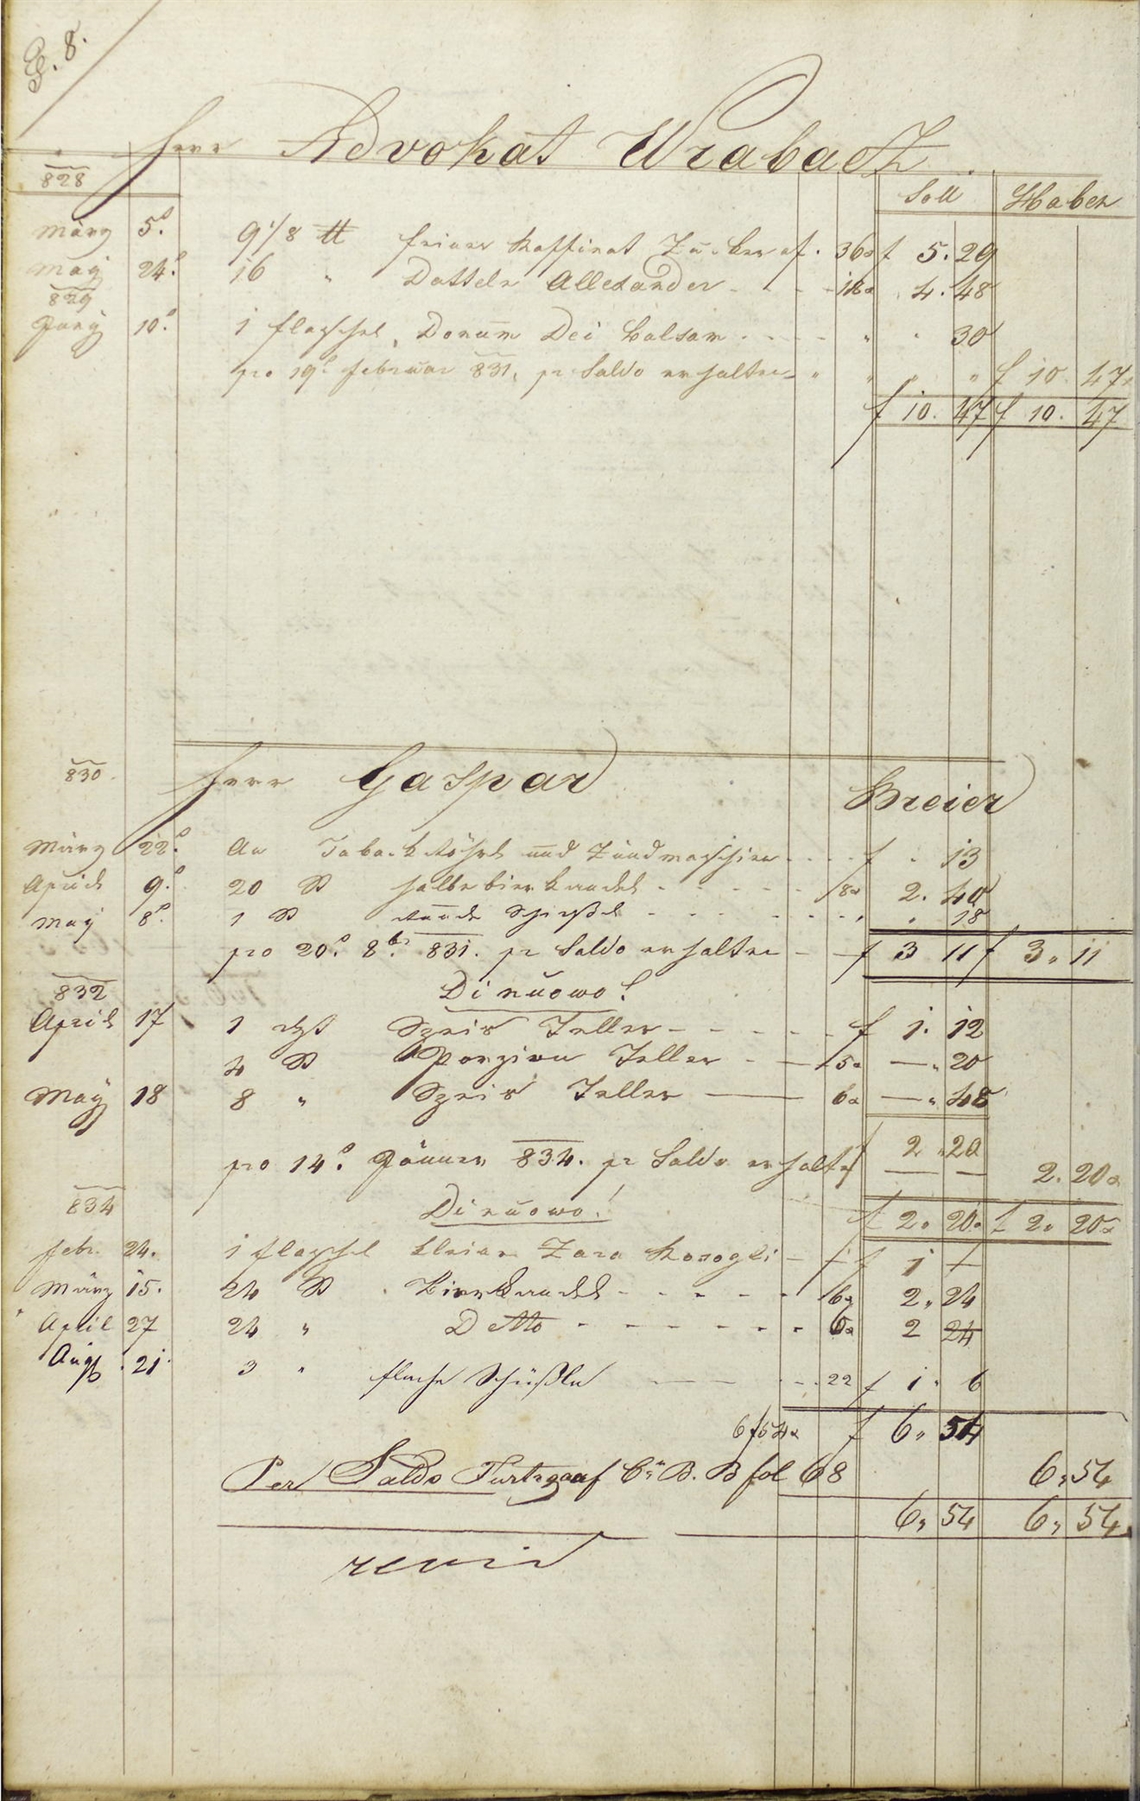 G. 8.
Herr Advokat Wrabatz
828 Soll Haber
März 5. 9 1/8 ℔ feiner Raffinat Zucker af. 36x f 5. 29
May 24. 16 " Datteln Allexander - - - 18x 4. 48
829
Juny 10. 1 flaschel, Donum Dei Balsam - - - - " " 30
pro 19. Februar 831, pr Saldo erhalten - " " " " f 10. 47
f 10. 47 f 10. 47
830 Herr Gaspar Breier
März 22. An Taback Röhrl und Zündmaschien - - - - f " 13
April 9. 20 St halbe bier - - - - - 8x 2. 40
May 8. 1 St runde - - - - - - - " 18
pro 20. 8br. 831. pr Saldo erhalten - - f 3 11 f 3 " 11
832 Di nuowo!
April 17 1 Speis Teller - - - - - f 1. 12
4 St Porzion Teller - - 5x — " 20
May 18 8 " Speis Teller — 6x — " 48
2 " 20
pro 14. Jänner 834. pr Saldo erhalten 2. 20x
834 Di nuowo! f 2 " 20x f 2 " 20x
Febr. 24. 1 flaschel Zara Rosogli - f 1 —
März 15. 24 St - - - - - 6x 2 " 24
April 27 24 " Detto - - - - - - - 6x 2 24
Augst 21. 3 " flache Schüßln - - - 22 f 1 " 6
6 f 54x f 6 " 54
Per Saldo B. B fol 68 6 " 54
6 " 54 6 " 54
revid